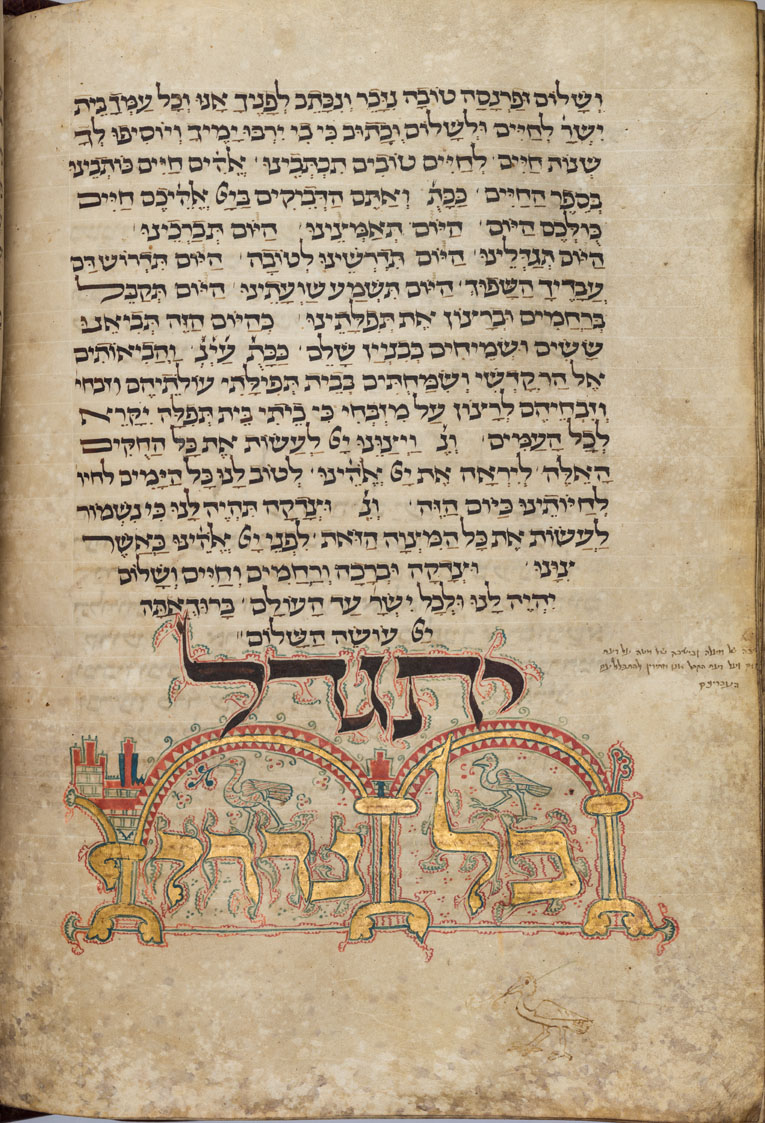 וְשָׁלוֹם וּפַרְנָסָה טוֹבָה נִיזָּכֵר וְנִכָּתֵב לְפָנֶיךָ אָנוּ וְכָל עַמְּךָ בֵּית
יִשְׂרָ לְחַיִּים וּלְשָׁלוֹם וְכָתוּב כִּי בִי יִרְבּוּ יָמֶיךָ וְיוֹסִיפוּ לְךָ
שְׁנוֹת חַיִּים לְחַיִּים טוֹבִים תִּכְתְּבֵינוּ אֱלֹהִים חַיִּים כּוֹתְבֵינוּ
בְּסֵפֶר הַחַיִּים כַּכָּת וְאַתֶּם הַדְּבֵיקִים בַּייָ אֱלֹהֵיכֶם חַיִּים
כּוּלְּכֶם הַיּוֹם הַיּוֹם תְּאַמְּצֵינוּ הַיּוֹם תְּבָרְכֵינוּ
הַיּוֹם תְּגַדְּלֵינוּ הַיּוֹם תִּדְרְשֵׁינוּ לְטוֹבָה הַיּוֹם תִּדְרוֹשׁ דַּם
עֲבָדֶיךָ הַשָּׁפוּךְ הַיּוֹם תִּשְׁמַע שַׁוְעָתֵינוּ הַיּוֹם תְּקַבֵּל
בְּרַחֲמִים וּבְרָצוֹן אֶת תְּפִלָּתֵינוּ כְּהַיּוֹם הַזֶּה תְּבִיאֵנוּ
שָׂשִׂים וּשְׂמֵיחִים בְּבִנְיַן שָׁלֵם כַּכָּת וַהֲבִיאוֹתִים
אֶל הַר קָדְשִׁי וְשִׂמַּחְתִּים בְּבֵית תְּפִילָּתִי עוֹלֹתֵיהֶם וזבחי
וְזִבְחֵיהֶם לְרָצוֹן עַל מִזְבְּחִי כִּי בֵיתִי בֵּית תְּפִלָּה יִקָּרֵא
לְכָל הָעַמִּים וְנֶ וַיְצַוֵּנוּ יְיָ לַעֲשׂוֹת אֶת כָּל הַחֻקִּים
הָאֵלֶּה לְיִרְאָה אֶת יְיָ אֱלֹהֵינוּ לְטוֹב לָנוּ כָּל הַיָּמִים לחיו
לְחַיּוֹתֵינוּ כַּיּוֹם הַזֶּה וְנֶ וּצְדָקָה תִּהְיֶה לָּנוּ כִּי נִשְׁמוֹר
לַעֲשׂוֹת אֶת כָּל הַמִּצְוָה הַזֹּאת לִפְנֵי יְיָ אֱלֹהֵינוּ כַּאֲשֶׁר
צִוָּנוּ וּצְדָקָה וּבְרָכָה וְרַחֲמִים וְחַיִּים וְשָׁלוֹם
יִהְיֶה לָנוּ וּלְכָל יִשְׂרָ עַד הָעוֹלָם בָּרוּךְ אַתָּה
יְיָ עוֹשֶׂה הַשָּׁלוֹם
יתגדל
כל נדרי